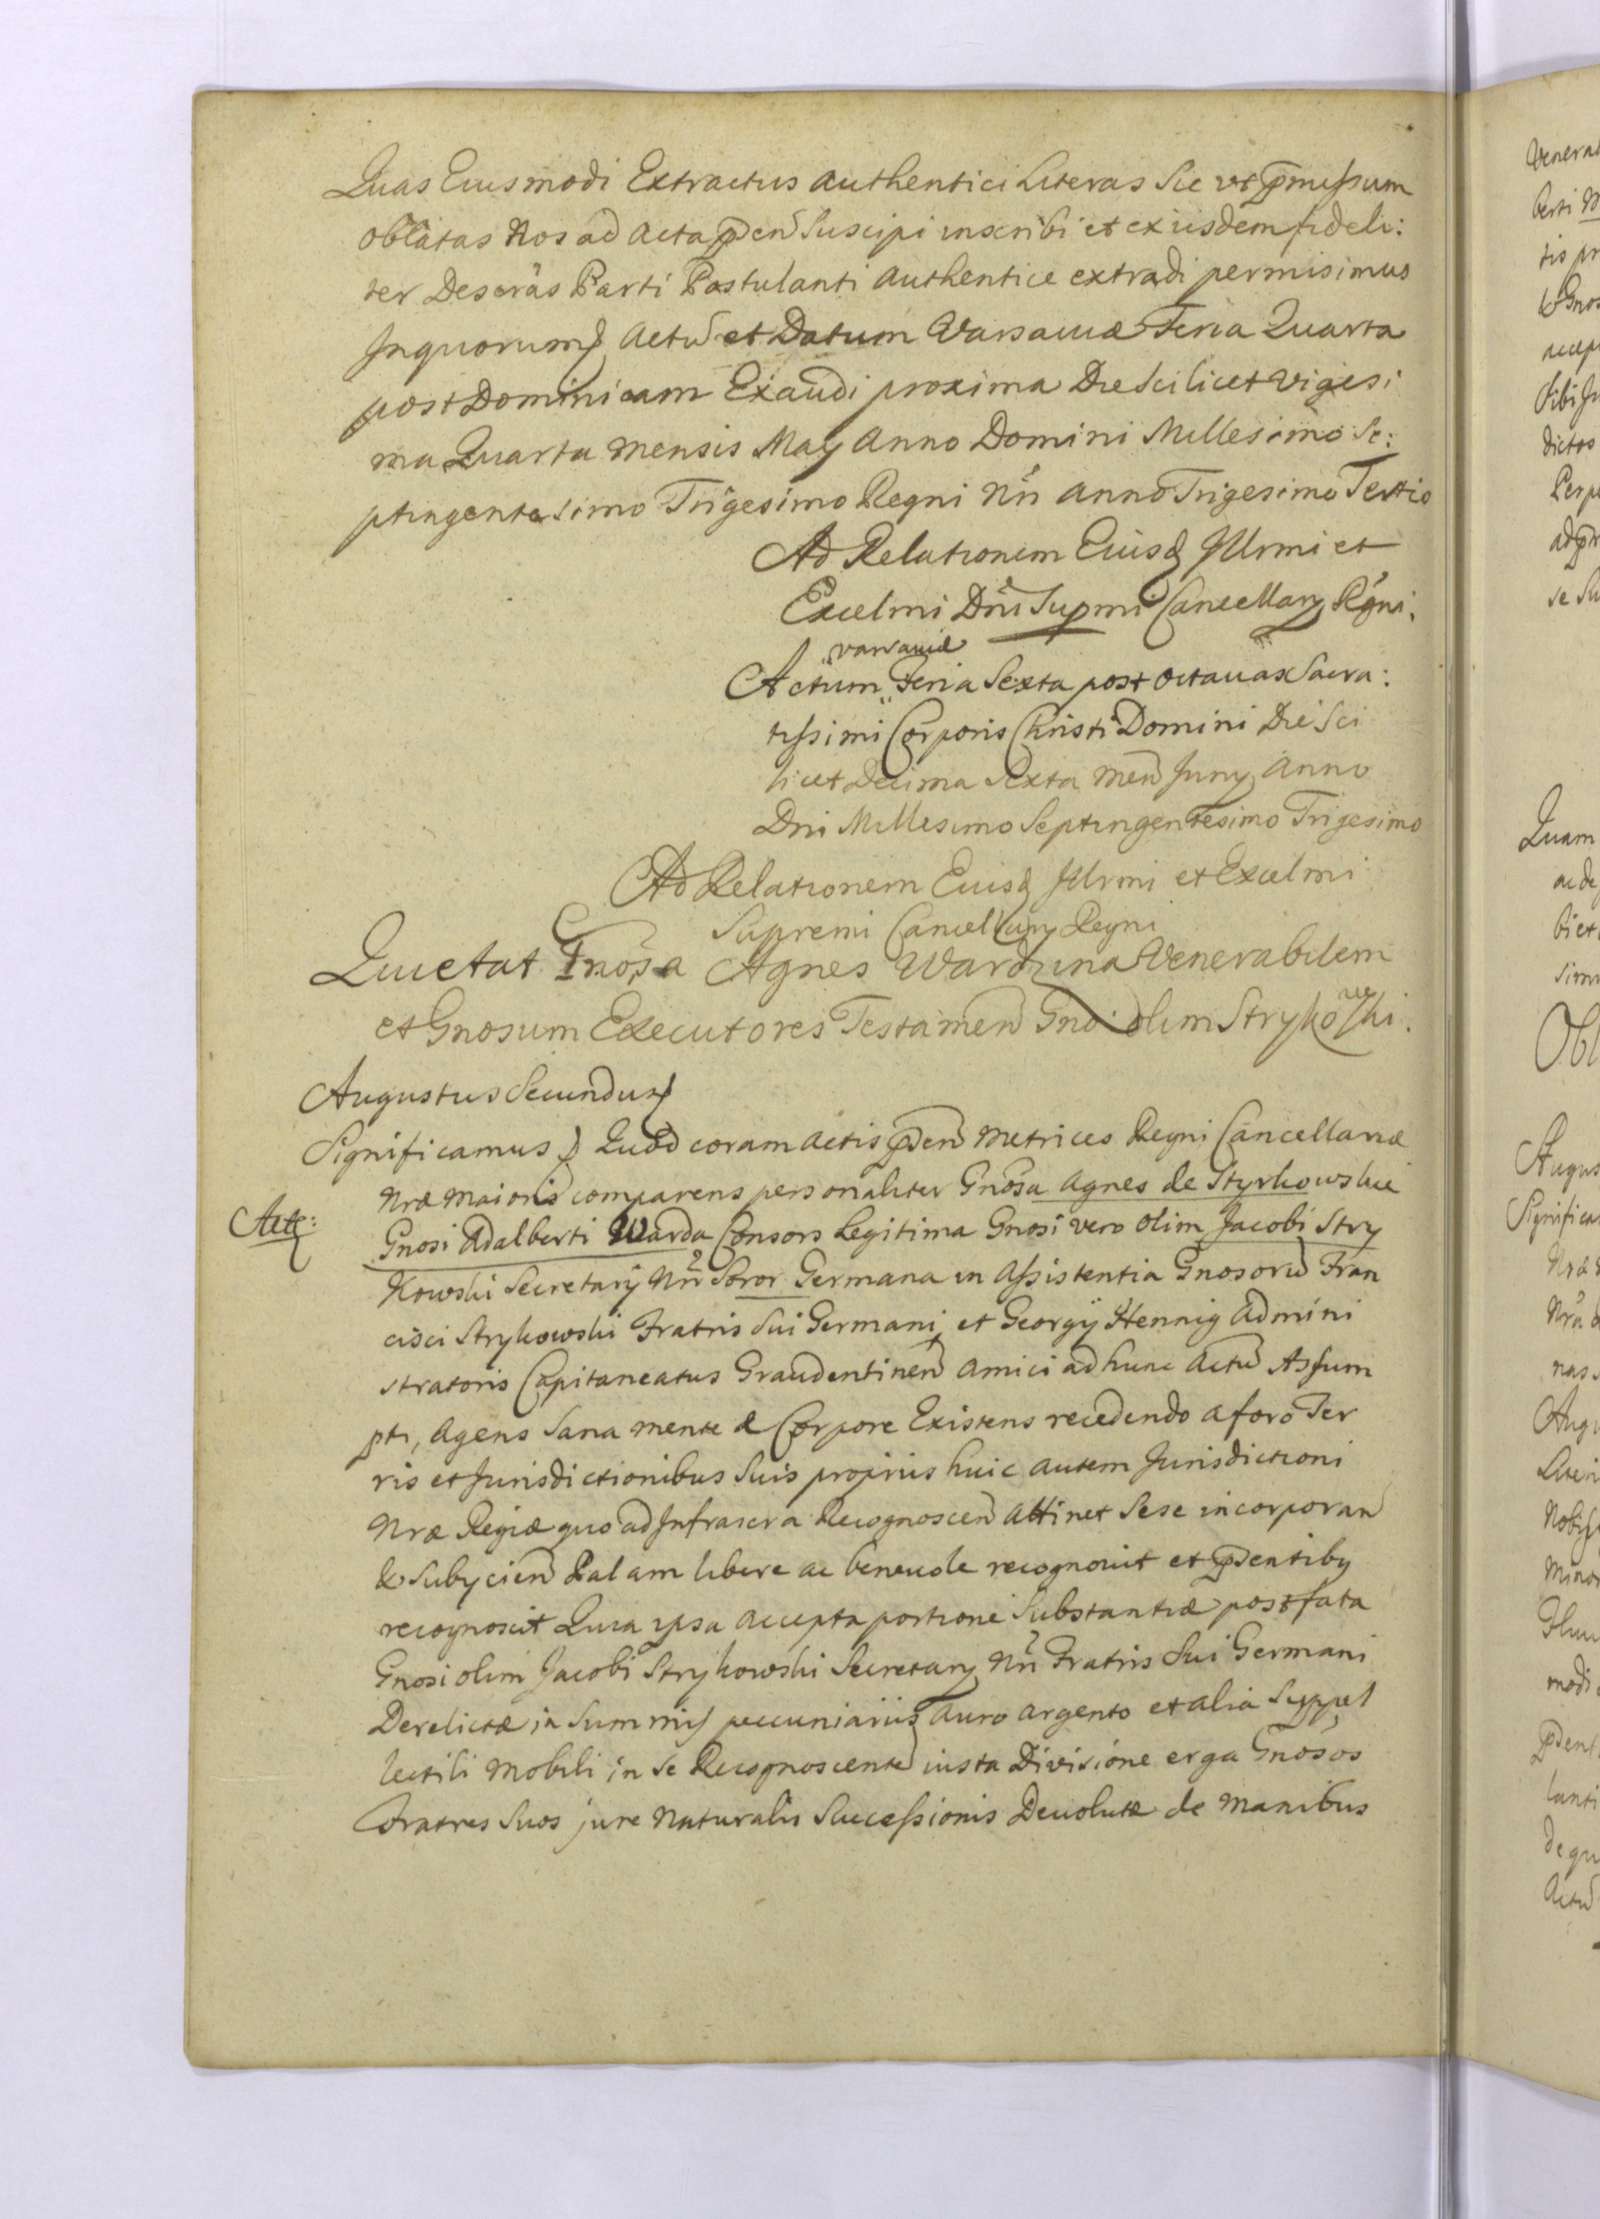 Quas Eiusmodi Extractus Authentici Literas Sic ut pmissum
oblatas Nos ad Acta pden Suscipi inscribi et ex iisdem fideli:
ter Descrãs Parti Postulanti Authentice extradi permisimus
In quorum Actũ et Datum Varsaviæ Feria Quarta
post Dominicam Exaudi proxima Die Scilicet Vigesi
ma Quarta Mensis May Anno Domini Millesimo Se:
ptingentesimo Trigesimo Regni Nri Anno Trigesimo Tertio
Ad Relationem Eiusd Illrmi et
Excelmi Dni Supmi Cancellary Regni.
Varsaviæ
Actum Feria Sexta post Octavas Sacra:
tissimi Corporis Christi Domini Die Sci
licet Decima Sexta Men Juny Anno
Dni Millesimo Septingentesimo Trigesimo
Ad Relationem Eiusd Illrmi et Excelmi
Supremi Cancellary Regni
Quietat Gnosa Agnes Wardzina Venerabilem
et Gnosum Executores Testamen Gnoi olim Strykowski.
Augustus Secundus
Significamus Quod coram Actis pden Metrices Regni Cancellariæ
Nræ Maioris comparens personaliter Gnosa Agnes de Strykowskie
Gnosi Adalberti Warda Consors Legitima Gnosi vero olim Jacobi Stry
Kowski Secretarÿ Nri Soror Germana in Assistentia Gnosorũ Fran
cisci Strykowski Fratris Sui Germani et Georgÿ Hennig Admini
stratoris Capitaneatus Graudentinen Amici ad hunc Actũ Assum
pti, Agens Sana mente & Corpore Existens recedendo a foro Ter
ris et Jurisdictionibus Suis proprius huic autem Jurisdictioni
Nræ Regiæ quo ad Infrascra Recognoscen Attinet Sese incorporan
& Subycien Palam libere ac benevole recognovit et pdentiby
recognoscit Quia ipsa Accepta portione Substantiæ post fata
Gnosi olim Jacobi Strykowski Secretary Nri Fratris Sui Germani
Derelictæ in Summis pecuniariis Auro Argento et alia Suppel
lectili Mobili in Se Recognoscente iusta Divisione erga Gnosos
Fratres Suos jure Naturalis Successionis Devolutæ de Manibus